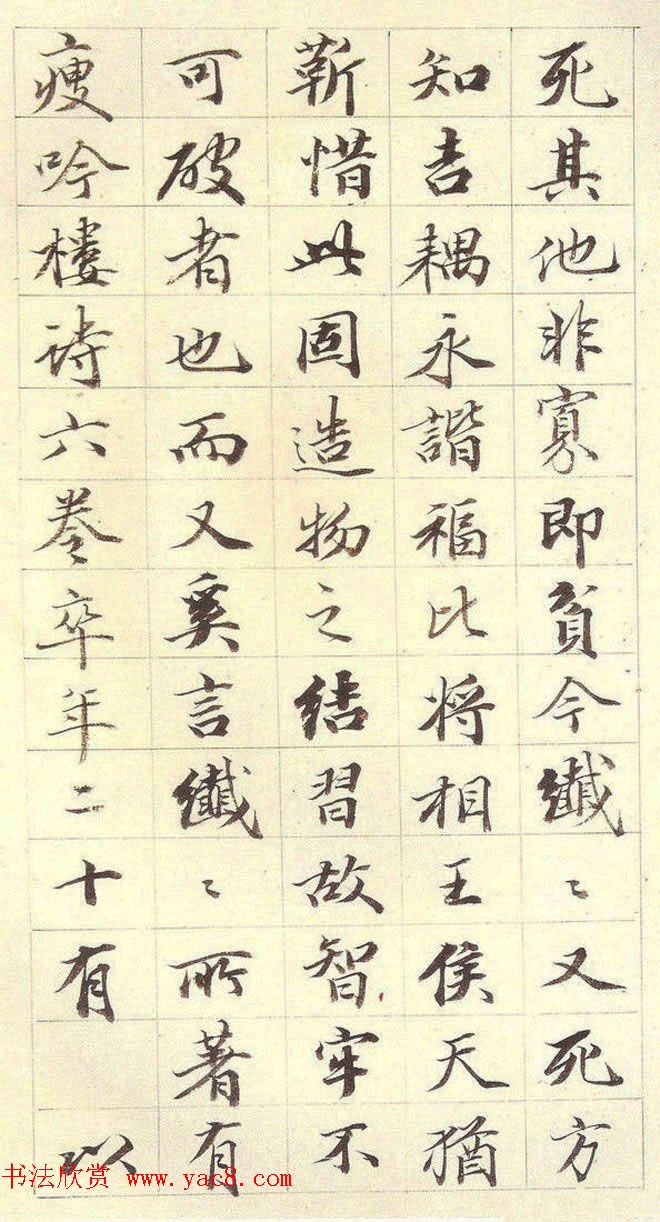 死其他非寡即貧今纖〻又死方
知吉耦永諧福比将相王侯天猶
靳惜此固造物之结習故智牢不
可破者也而又奚言纖〻所著有
瘦吟樓詩六卷卒年二十有 以
书法欣赏 www.yac8.com